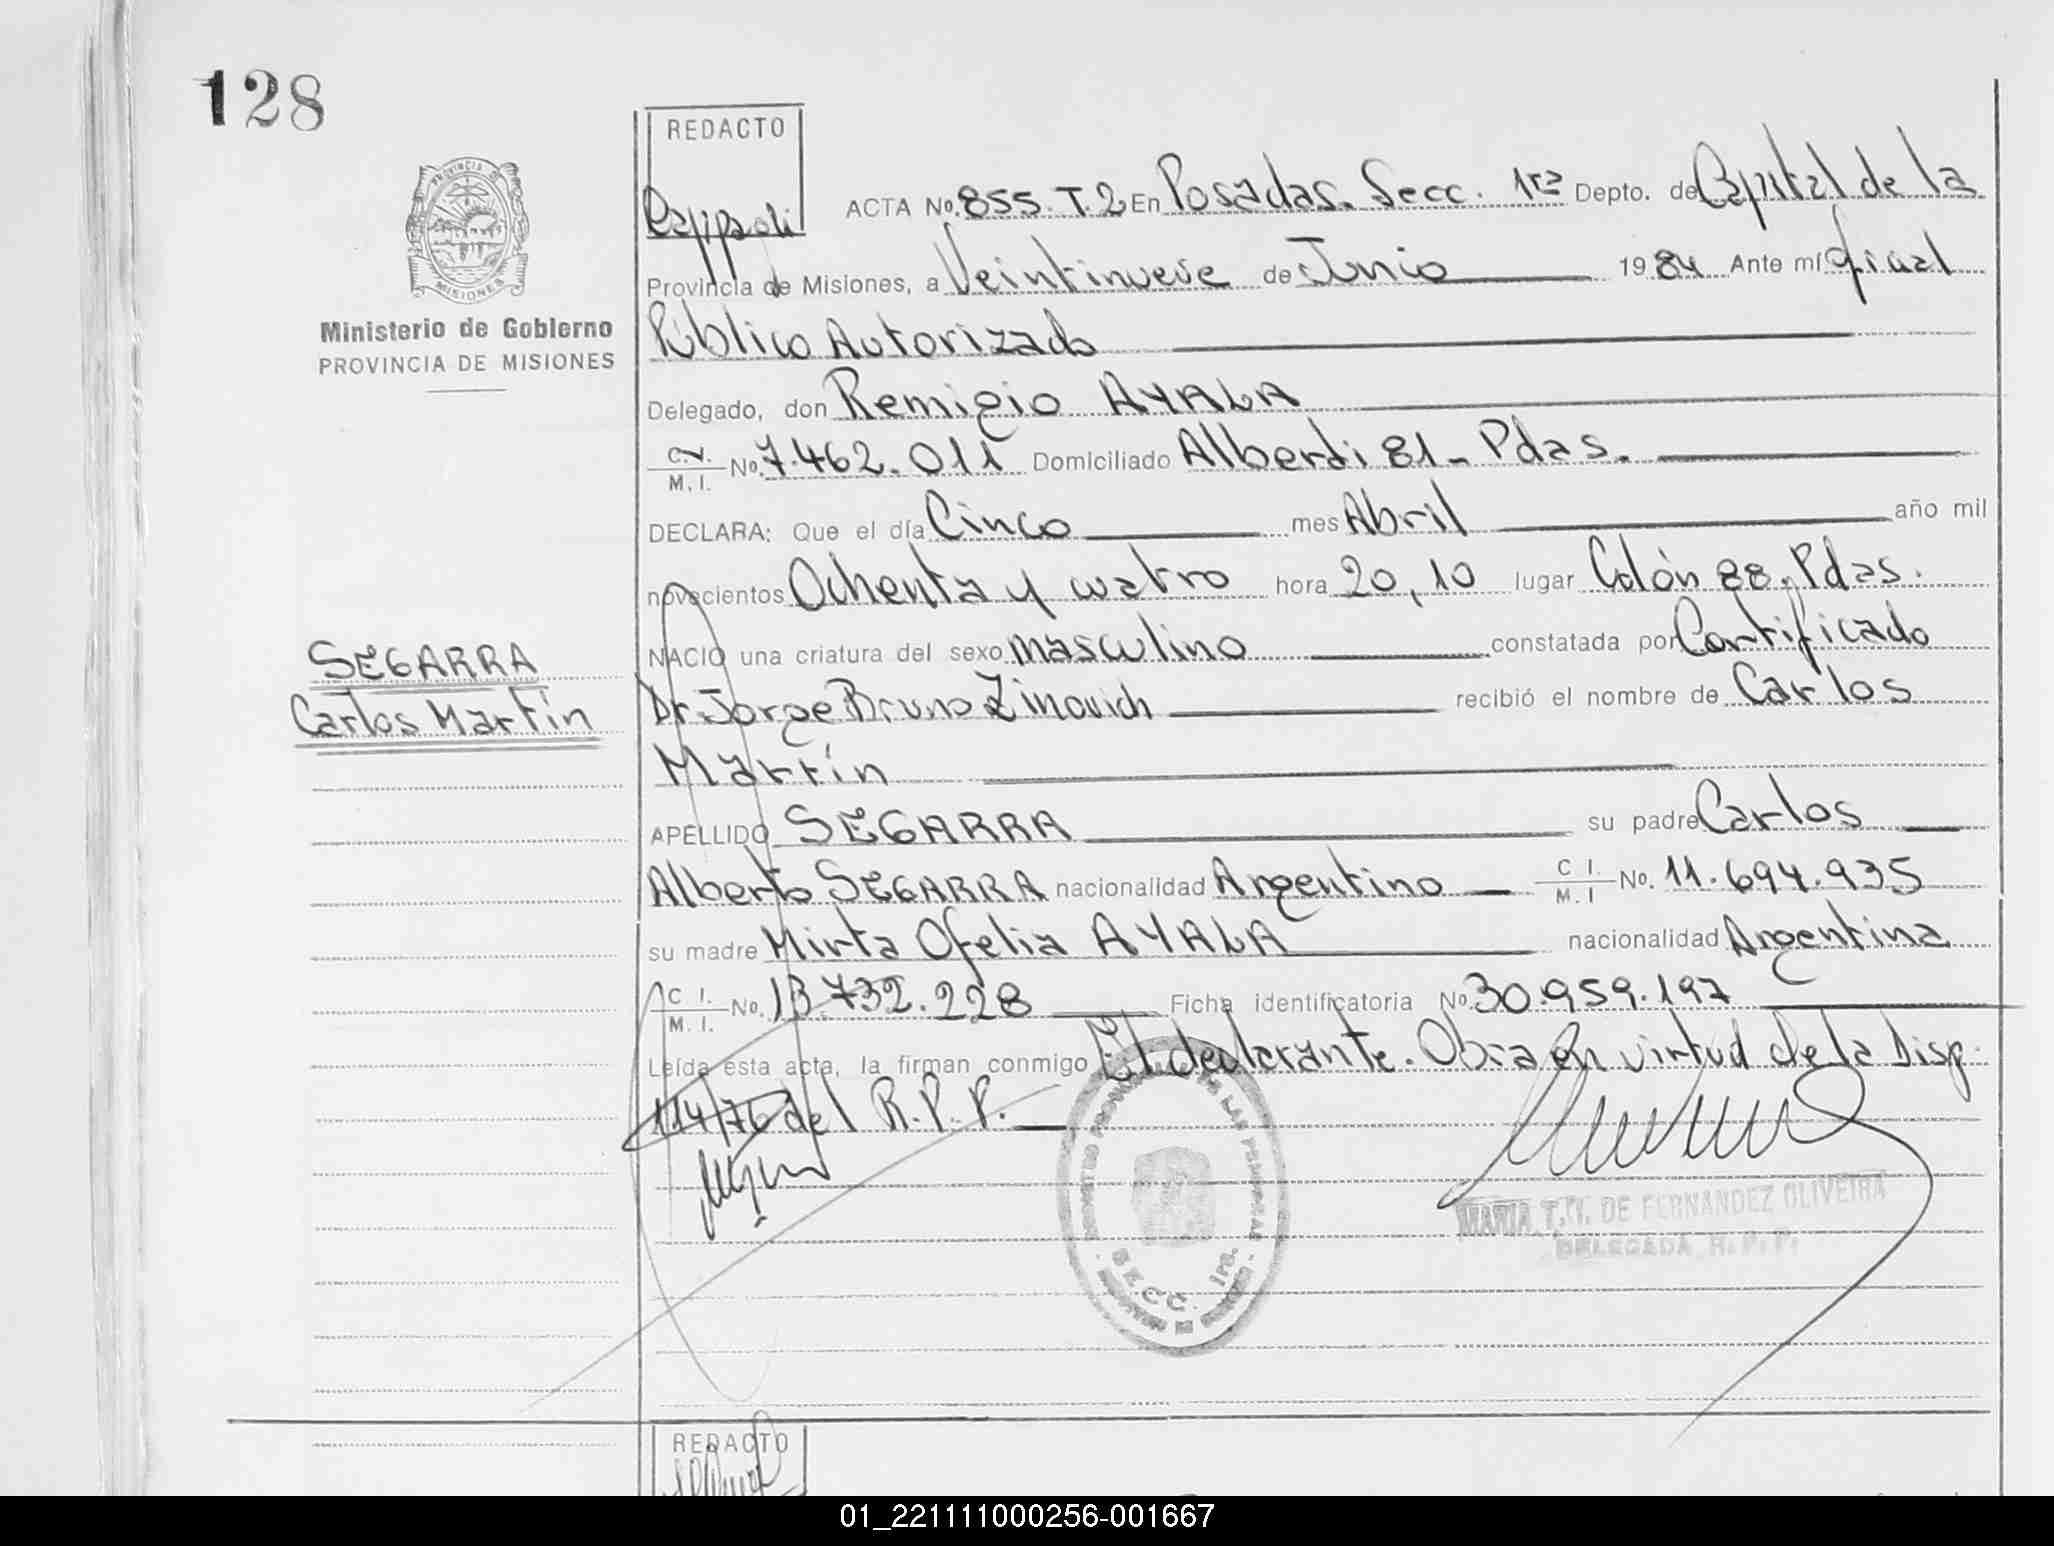 128
REDACTO
ACTA No. 855. T. 2 En Posadas. Secc. 1ra Depto. de Capital de la
Provincia de Misiones, a Veintinueve de Junio 19 84 Ante mí Oficial
Público Autorizado
Delegado, don Remigio AYALA
C.I. / M.I. No. 7.462.011 Domiciliado Alberdi 81 - Pdas.
DECLARA: Que el día Cinco mes Abril año mil
novecientos Ochenta y cuatro hora 20,10 lugar Colón 88. Pdas.
NACIO una criatura del sexo masculino constatada por Certificado
Dr. Jorge Bruno Zinovich recibió el nombre de Carlos
Martín
APELLIDO SEGARRA su padre Carlos
Alberto SEGARRA nacionalidad Argentino C I. / M. I No. 11.694.935
su madre Mirta Ofelia AYALA nacionalidad Argentina
C I. / M. I. No. 13.732.228 Ficha identificatoria No. 30.959.197
Leída esta acta, la firman conmigo El declarante. Obra en virtud de la Disp.
114/76 del R.P.P.
PROVINCIA DE
MISIONES
Ministerio de Gobierno
PROVINCIA DE MISIONES
SEGARRA
Carlos Martín
DE LAS PERSONAS
SECC. 1RA.
MARIA T. DE FERNANDEZ OLIVEIRA
DELEGADA R. P. P.
REDACTO
01_221111000256-001667